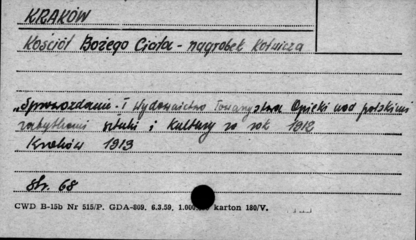 KRAKÓW
Kościół Bożego Ciała - nagrobek
"Sprawozdanie - I Wydawnictwo Towarzystwa Opieki nad polskimi
zabytkami sztuki i kultury za rok 1912
Kraków 1913
Str. 68
CWD B-15b Nr 515/P. GDA-869. 6.3.59. karton 180/V.